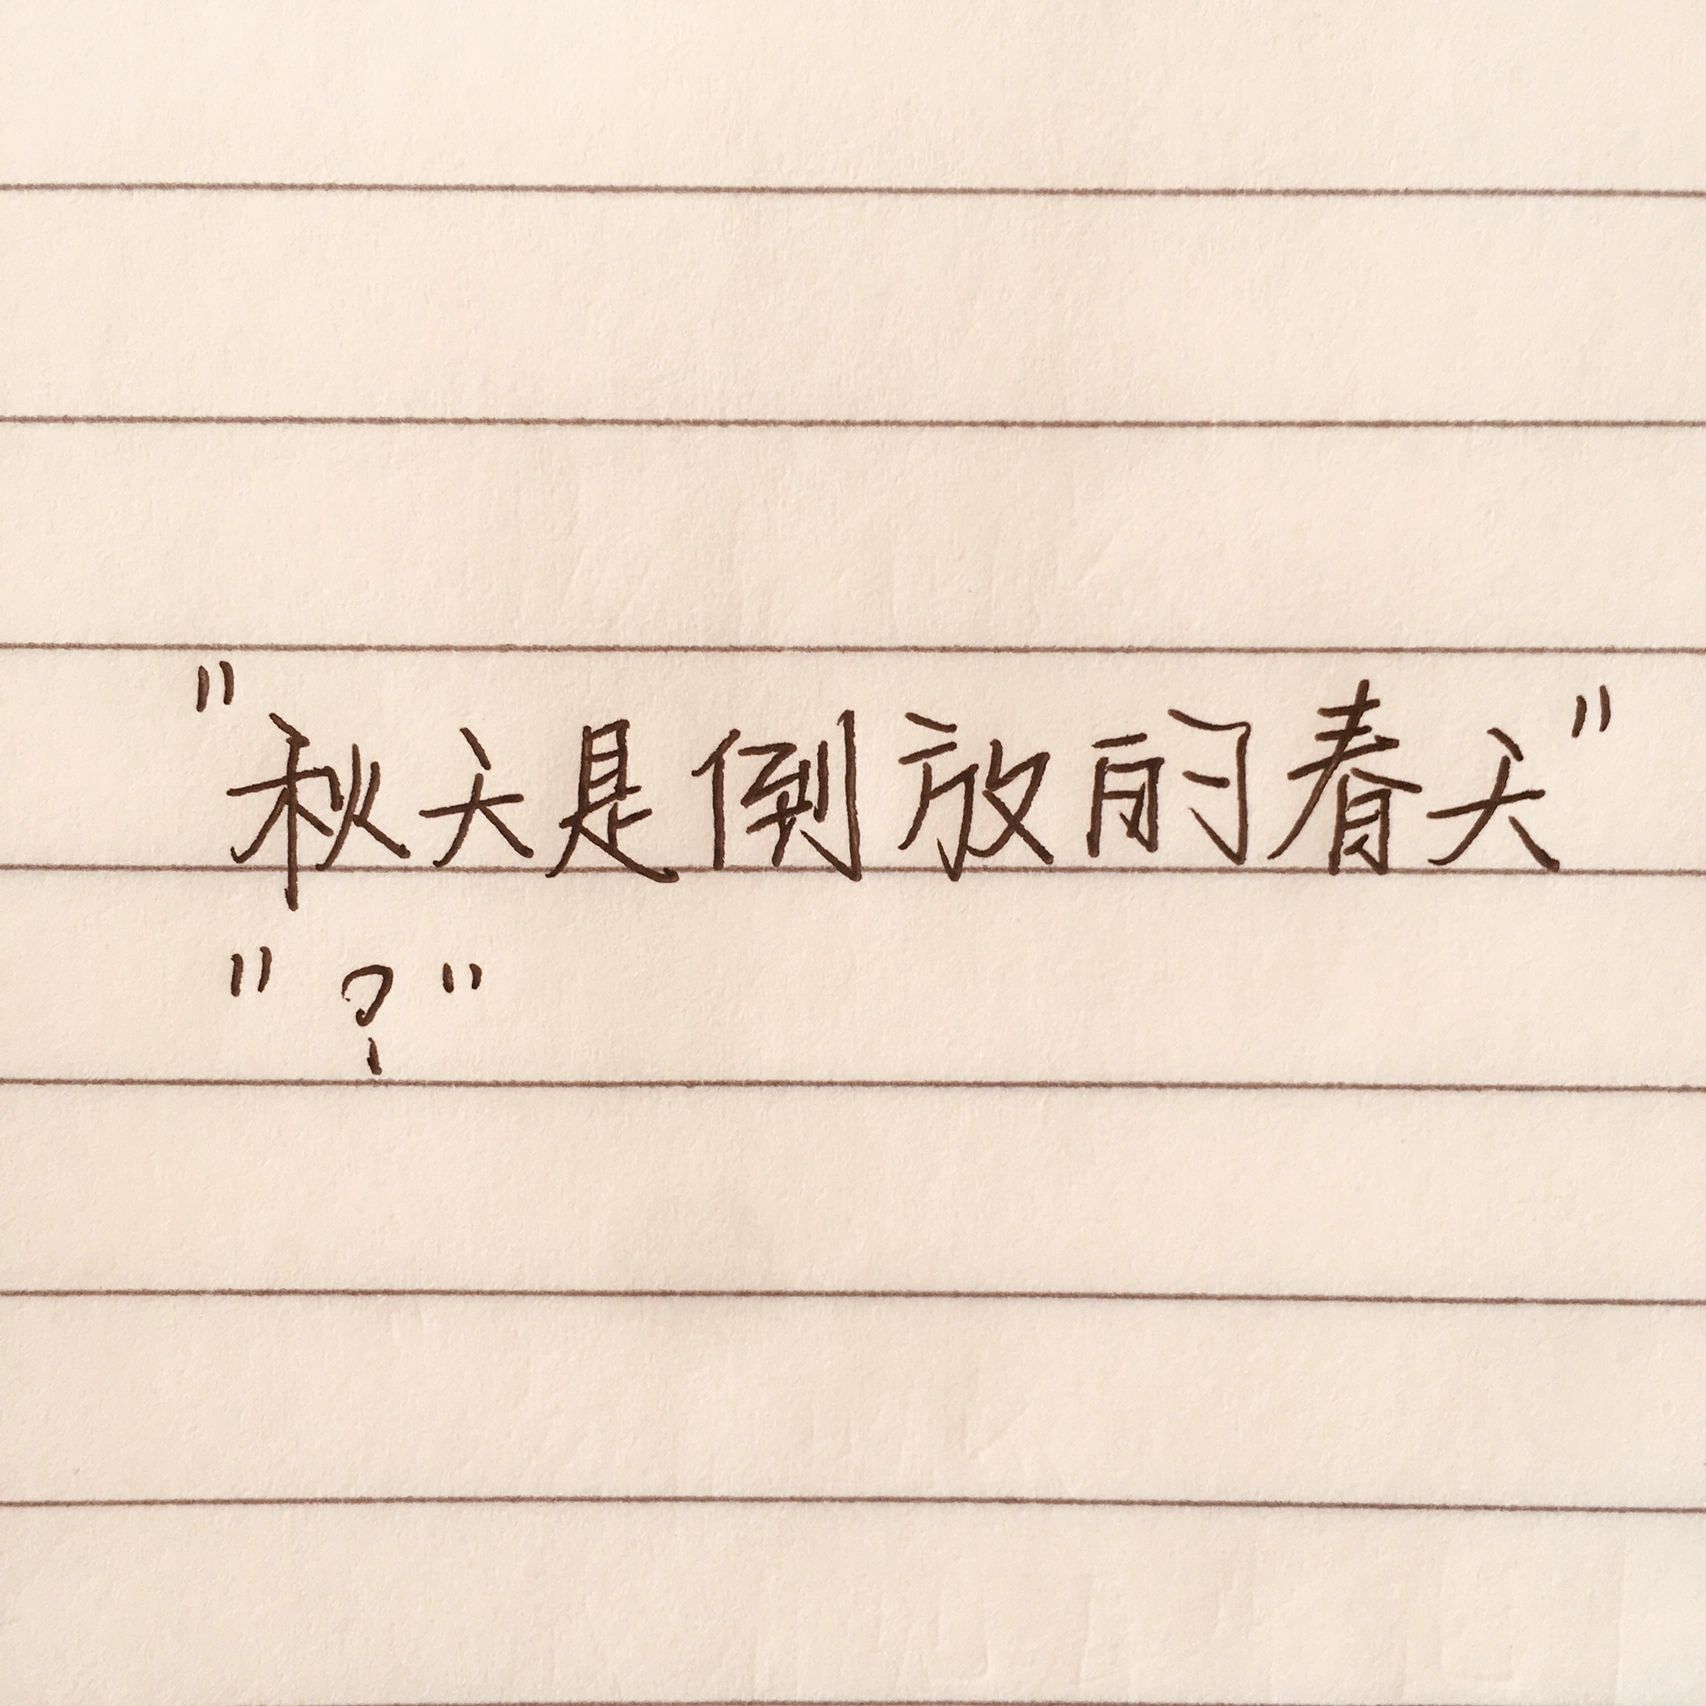 "秋天是倒放的春天"
"?"